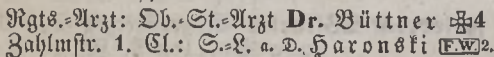 Rgts.=Arzt: Ob.=St.=Arzt Dr. Büttner ✠4
Zahlmstr. 1. Cl.: S.=L. a. D. Haronski F.W 2.